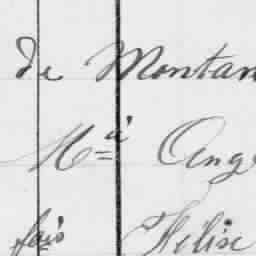 de Montan
Mᵃ Ang
fais Hélise